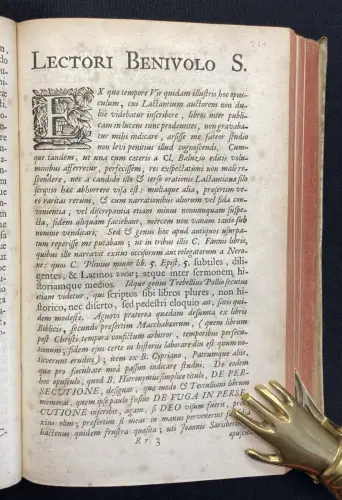 LECTORI BENIVOLO S.
EX quo tempore Vir quidam illustris hoc opus-
culum, cui Lactantium auctorem non du-
bie videbatur inscribere, libros inter publi-
cam in lucem tunc prodeuntes, non gravaba-
tur mihi indicare, arsisse me fateor studio
non levi penitius illud cognoscendi. Cum-
que tandem, ut una cum ceteris a Cl. Baluzio editis volu-
minibus afferretur, perfecissem; res exspectationi non male re-
spondere, nec a candido illo & terso orationis Lactantianæ filo
scriptio hæc abhorrere visa est: multaque alia, præsertim ve-
ro raritas rerum, & cum narrationibus aliorum vel fida con-
venientia, vel discrepantia etiam minus nonnumquam suspe-
cta, fidem aliquam faciebant, mercem non vanam tanto sub
nomine venditari. Sed & genus hoc apud antiquos usurpa-
tum reperisse me putabam; ut in tribus illis C. Fannii libris,
quibus ille narravit exitus occisorum aut relegatorum a Nero-
ne: quos C. Plinius minor lib. 5. Epist. 5. subtiles, di-
ligentes, & Latinos vocat; atque inter sermonem hi-
storiamque medios. Idque genus Trebellius Pollio secutus
etiam videtur, qui scriptos sibi libros plures, non hi-
storico, nec diserto, sed pedestri eloquio ait, satis qui-
dem modeste. Agnovi præterea quædam desumta ex libris
Biblicis, secundo præsertim Maccabæorum, (quem librum
post Christi tempora consictum arbitror, temporibus persecu-
tionum; fidem ejus certe in historiis laborare diu est quum no-
taverunt eruditi;) item ex B. Cypriano, Patrumque aliis,
quæ pro facultate mea passim indicare studui. De eodem
hoc opusculo, quod B. Hieronymus simplice titulo, DE PER-
SECUTIONE, designat, quo modo & Tertulliani librum
memorat, quem ipse paulo fusius DE FUGA IN PERSE-
CUTIONE inscribit, agam, si DEO visum fuerit,
xius olim; præsertim si meas in manus pervenerint
hactenus quidem frustra quæsita; uti Joannis
Rr 3